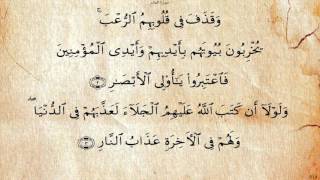 وَقَذَفَ فِى قُلُوبِهِمُ ٱلرُّعْبَ ۚ
يُخْرِبُونَ بُيُوتَهُم بِأَيْدِيهِمْ وَأَيْدِى ٱلْمُؤْمِنِينَ
فَٱعْتَبِرُوا۟ يَـٰٓأُو۟لِى ٱلْأَبْصَـٰرِ ۝٢
وَلَوْلَآ أَن كَتَبَ ٱللَّهُ عَلَيْهِمُ ٱلْجَلَآءَ لَعَذَّبَهُمْ فِى ٱلدُّنْيَا ۖ
وَلَهُمْ فِى ٱلْـَٔاخِرَةِ عَذَابُ ٱلنَّارِ ۝٣